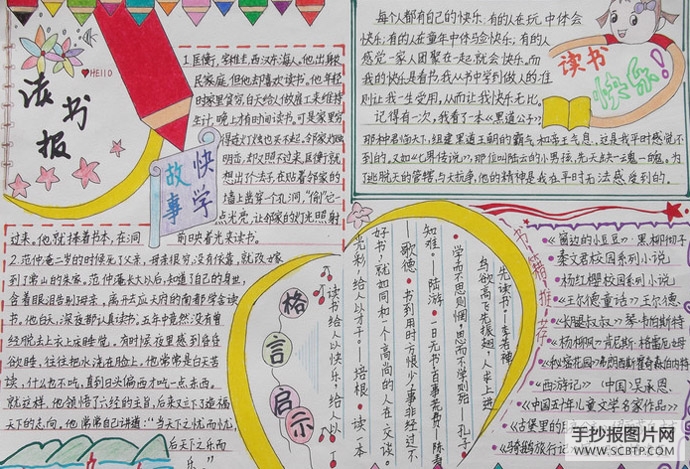 读书报
HEllO
快学
故事
1.匡衡,家维去,西汉东海人。他出身农
民家庭,但他却喜欢读书。他年轻
时家里贫穷,白天给人做雇工来维持
生计,晚上才有时间读书。可是家里穷
得连灯烛也买不起。邻家灯烛
明亮,却又照不过来,匡衡就
想出个法子,在贴着邻家的
墙上凿穿个孔洞,“偷”它一
点光亮,让邻家的灯光照射
过来。他就捧着书本,在洞
前映着光来读书。
2.范仲淹二岁的时候死了父亲。母亲很穷,没有依靠,就改嫁
到了常山的朱家。范仲淹长大以后,知道了自己的身世,
含着眼泪告别母亲,离开去应天府的南都学舍读
书。他白天、深夜都认真读书。五年中竟然没有曾
经脱去上衣上床睡觉。有时候夜里感到昏昏
欲睡,往往把水浇在脸上。他常常是白天苦
读,什么也不吃,直到日头偏西才吃一点东西。
就这样,他领悟了六经的主旨,后来又立下了造福
天下的志向。他常常自己讲道:“当先天下之忧而忧,
后天下之乐而
乐。”
每个人都有自己的快乐:有的人在玩中体会
快乐;有的人在童年中体会快乐;有的人
感觉一家人团聚在一起就会快乐。而
我的快乐是看书,我从书中学到做人的准
则让我一生受用,从而让我快乐无比。
记得有一次,我看了本《黑道公子》。
那种君临天下,组建黑道王朝的霸气和帝王气息,这是我平时感觉不
到的。又如《七界传说》,那位叫陆云的小男孩,先天缺一魂一魄。为
了逃脱天的管辖,与天抗争,他的精神是我在平时无法感受到的。
读书
快乐!
格言启示
先读书。——李若禅
鸟欲高飞先振翅,人求上进
学而不思则惘,思而不学则殆——孔子
知难。——陆游 一日无书,百事荒废——陈寿
——歌德 书到用时方恨少,事非经过不
好书,就如同和一个高尚的人在交谈。
光彩,给人以才干。——培根 读一本
读书给人以快乐,给人以
书籍推荐
《窗边的小豆豆》黑柳彻子
秦文君校园系列小说
杨红樱校园系列小说
《王尔德童话》王尔德
《秘密花园》弗朗西斯霍奇森伯内特
《西游记》(中国)吴承恩
《中国五十年儿童文学名家作品》
《古堡里的
《骑鹅旅行记
手抄报图片网
WWW.SCBTP.COM